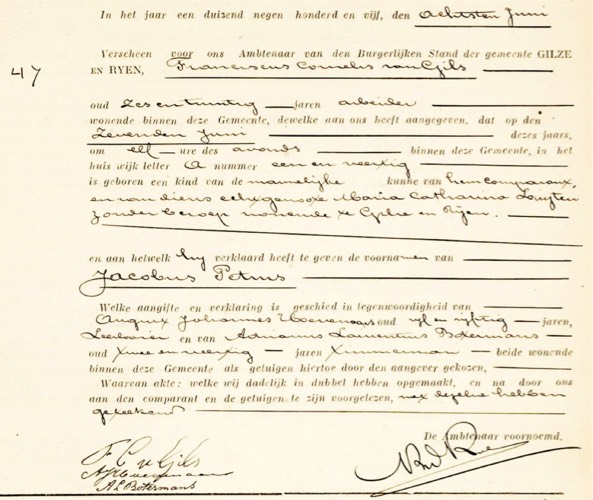 In het jaar een duizend negen honderd en vijf, den achtsten Juni
Verscheen voor ons Ambtenaar van den Burgerlijken Stand der gemeente GILZE
47
EN RYEN, Franciscus Cornelis van Gils
oud zes en twintig jaren arbeider
wonende binnen deze Gemeente, dewelke aan ons heeft aangegeven, dat op den
zevenden Juni dezes jaars,
om elf ure des avonds binnen deze Gemeente, in het
huis wijk letter A nummer een en veertig
is geboren een kind van de mannelijke kunne van hem comparant,
en van diens echtgenoote Maria Catharina Luijten
zonder beroep wonende te Gilze en Rijen.
en aan hetwelk hij verklaard heeft te geven de voornamen van
Jacobus Petrus
Welke aangifte en verklaring is geschied in tegenwoordigheid van
Johannes oud vijf en vijftig jaren,
en van Adrianus Laurentius Botermans
oud twee en veertig jaren Timmerman beide wonende
binnen deze Gemeente als getuigen hiertoe door den aangever gekozen,
Waarvan akte: welke wij dadelijk in dubbel hebben opgemaakt, en na door ons
aan den comparant en de getuigen te zijn voorgelezen, met dezelve hebben
geteekend
De Ambtenaar voornoemd,
F C v Gils
A L Botermans